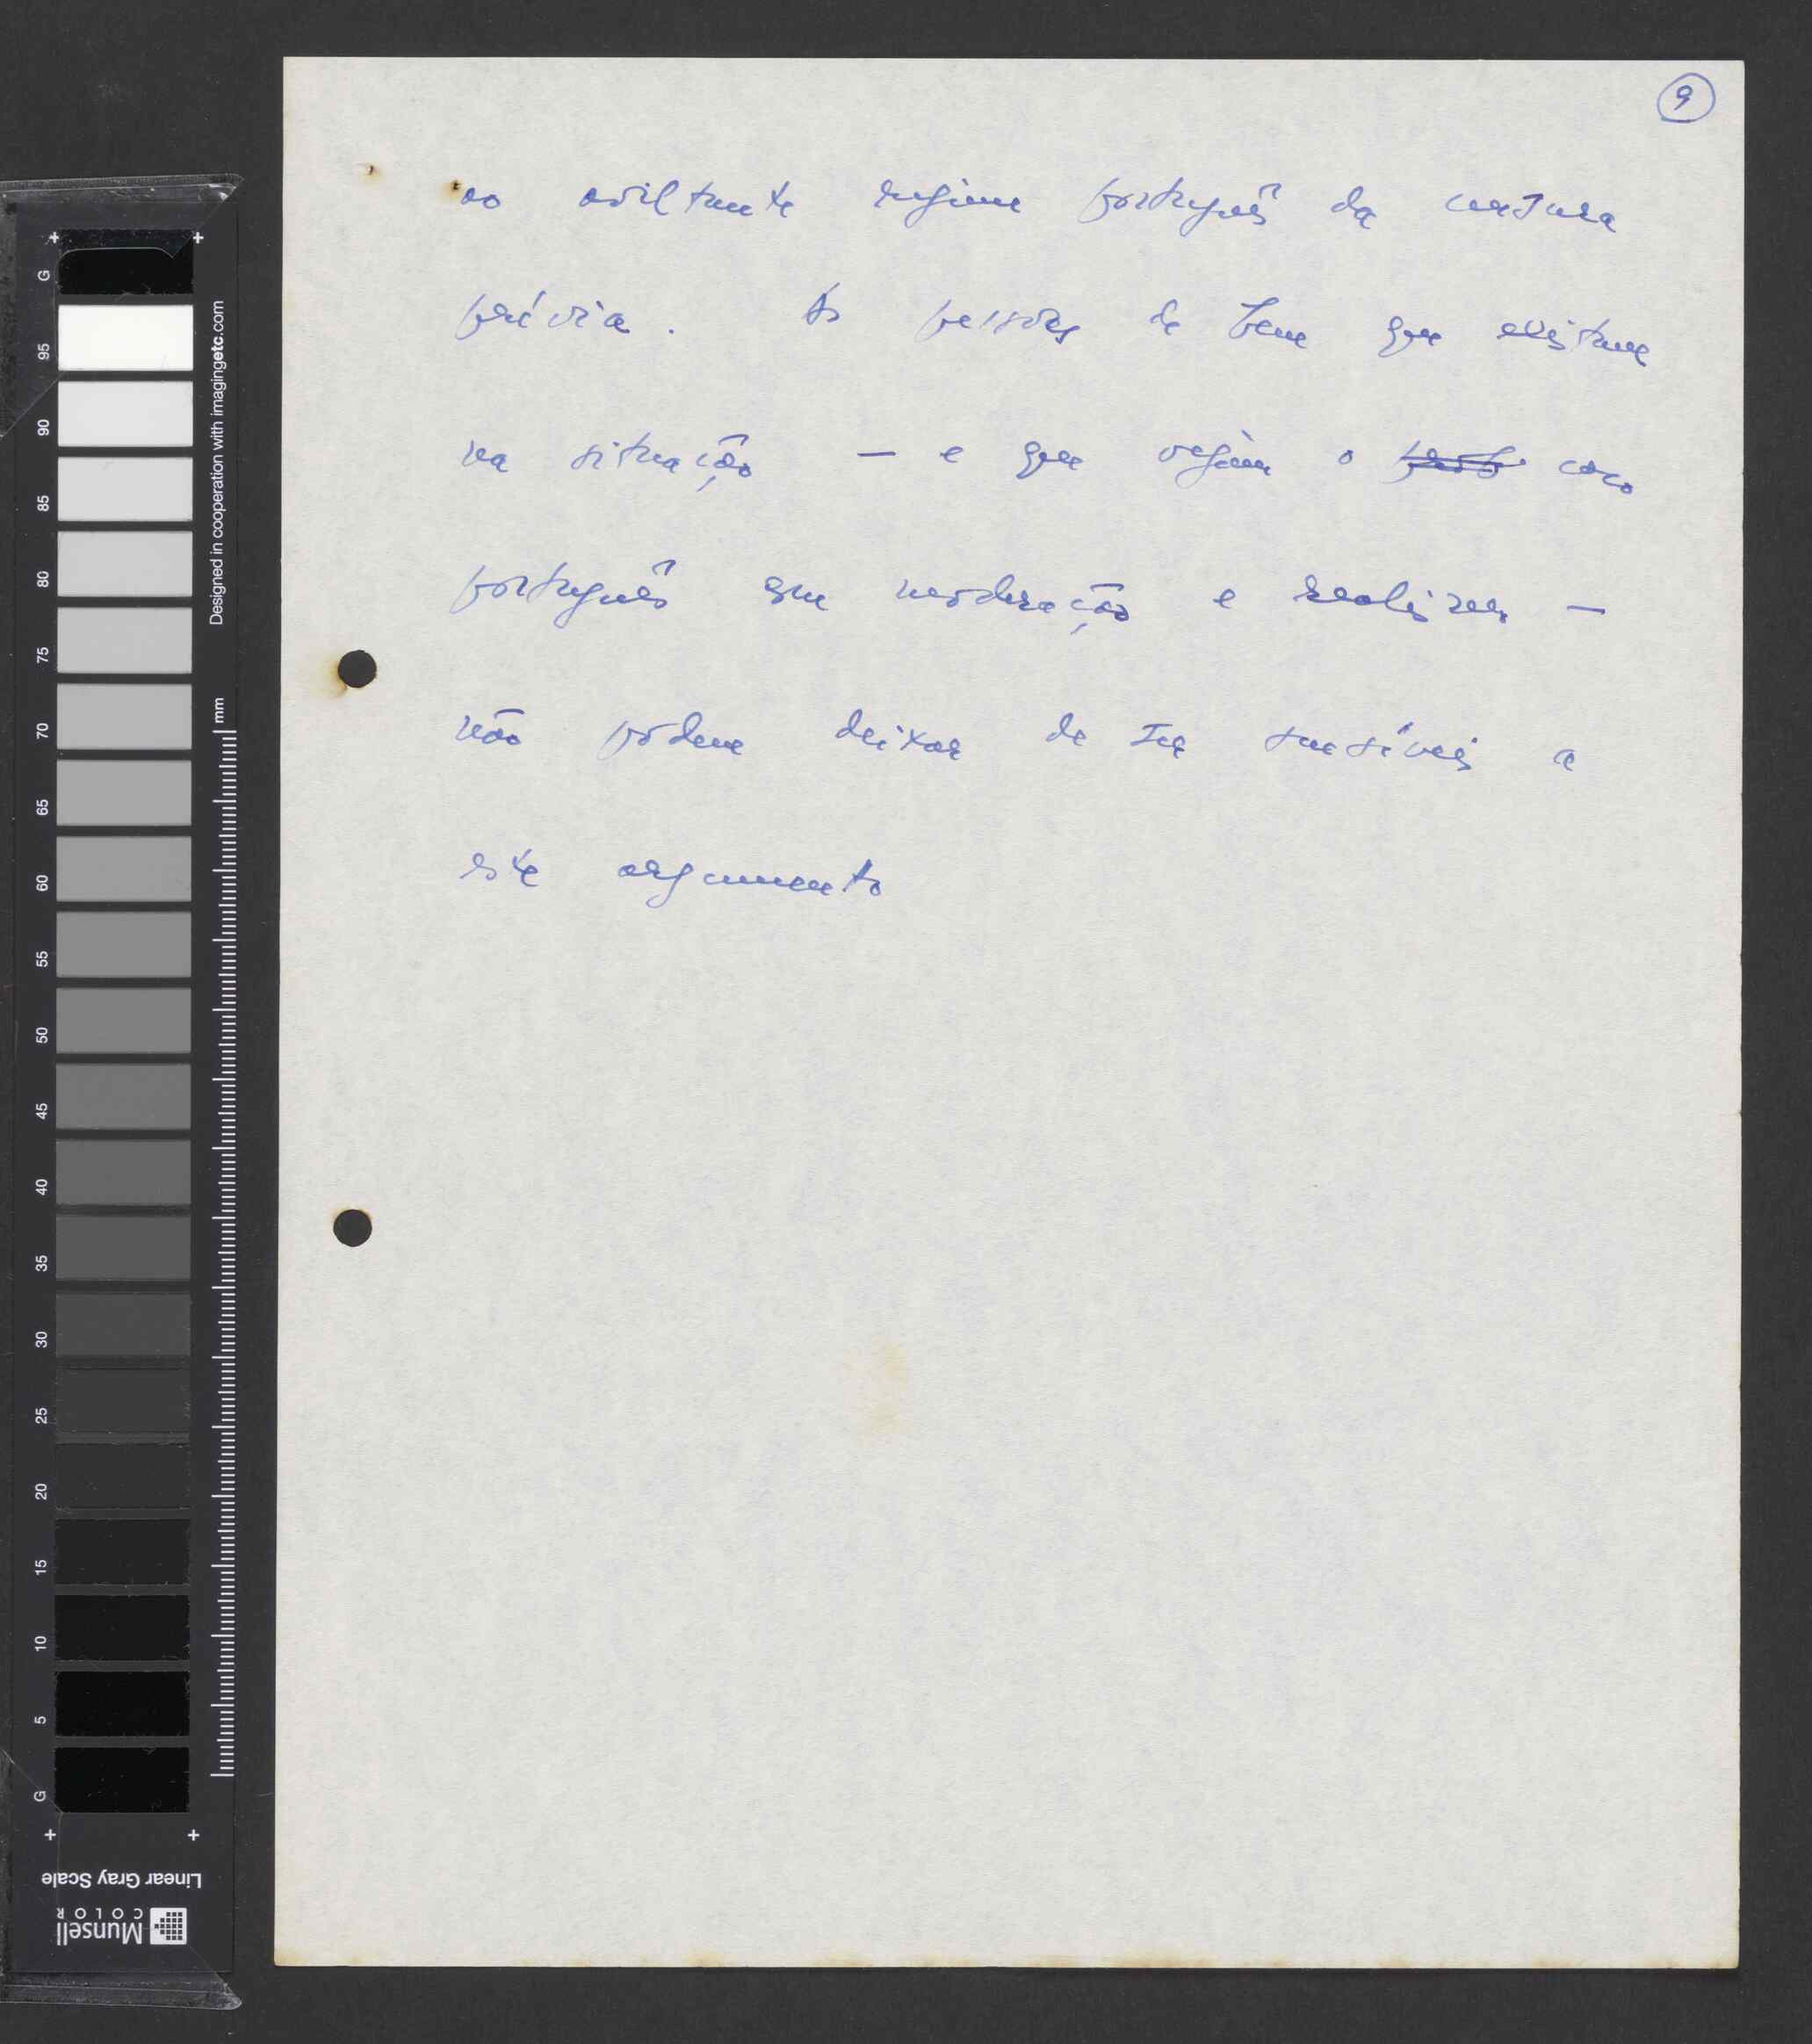 9
ao aviltante regime português da censura
prévia. As pessoas de bem que existem
na situação — e que vejam o caso
português com moderação e realismo —
não podem deixar de ser sensíveis a
este argumento
G
95
90
85
80
75
70
65
60
55
50
45
40
35
30
25
20
15
10
5
G
Designed in cooperation with imagingetc.com
mm
Linear Gray Scale
Munsell
COLOR